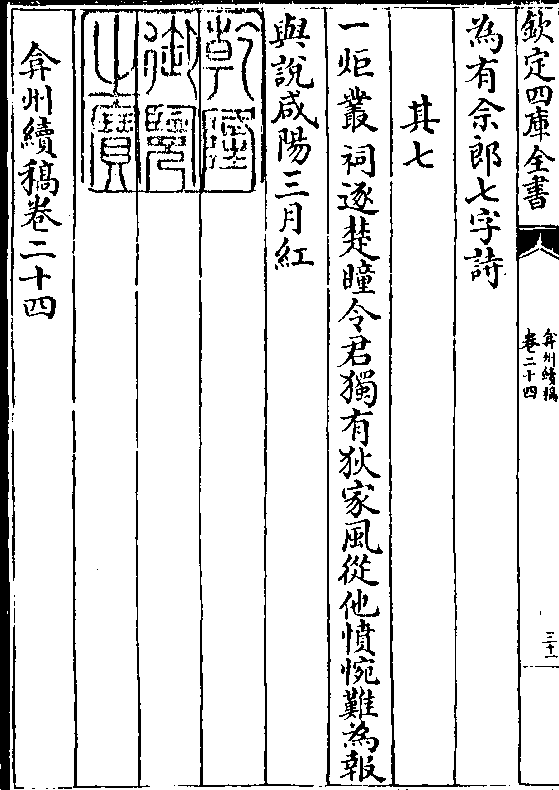 欽定四庫全書
弇州續稿
卷二十四
三十一
為有余郎七字詩
其七
一炬叢祠逐楚曈令君獨有狄家風從他憤惋難為報
與說咸陽三月紅
乾隆
御覽
之寶
弇州續稿卷二十四